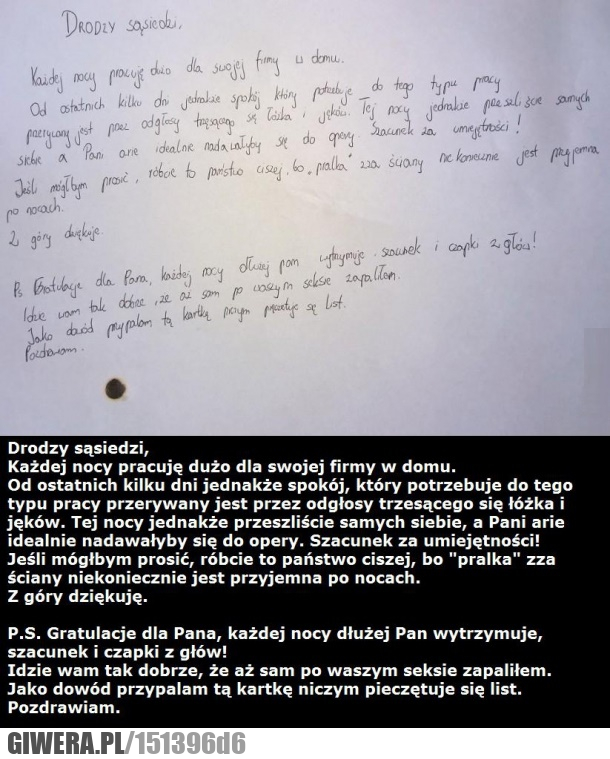 Drodzy sąsiedzi,
Każdej nocy pracuję dużo dla swojej firmy w domu.
Od ostatnich kilku dni jednakże spokój który potrzebuje do tego typu pracy
przerywany jest przez odgłosy trzęsącego się łóżka i jęków. Tej nocy jednakże przeszliście samych
siebie a Pani arie idealnie nadawałyby się do opery. Szacunek za umiejętności!
Jeśli mógłbym prosić, róbcie to państwo ciszej, bo „pralka" zza ściany nie koniecznie jest przyjemna
po nocach.
Z góry dziękuje.
Ps Gratulacje dla Pana, każdej nocy dłużej pan wytrzymuje, szacunek i czapki z głów!
Idzie wam tak dobrze, że aż sam po waszym seksie zapaliłem.
Jako dowód przypalam tą kartkę niczym pieczętuje się list.
Pozdrawiam.
Drodzy sąsiedzi,
Każdej nocy pracuję dużo dla swojej firmy w domu.
Od ostatnich kilku dni jednakże spokój, który potrzebuje do tego
typu pracy przerywany jest przez odgłosy trzesącego się łóżka i
jęków. Tej nocy jednakże przeszliście samych siebie, a Pani arie
idealnie nadawałyby się do opery. Szacunek za umiejętności!
Jeśli mógłbym prosić, róbcie to państwo ciszej, bo "pralka" zza
ściany niekoniecznie jest przyjemna po nocach.
Z góry dziękuję.
P.S. Gratulacje dla Pana, każdej nocy dłużej Pan wytrzymuje,
szacunek i czapki z głów!
Idzie wam tak dobrze, że aż sam po waszym seksie zapaliłem.
Jako dowód przypalam tą kartkę niczym pieczętuje się list.
Pozdrawiam.
GIWERA.PL/151396d6